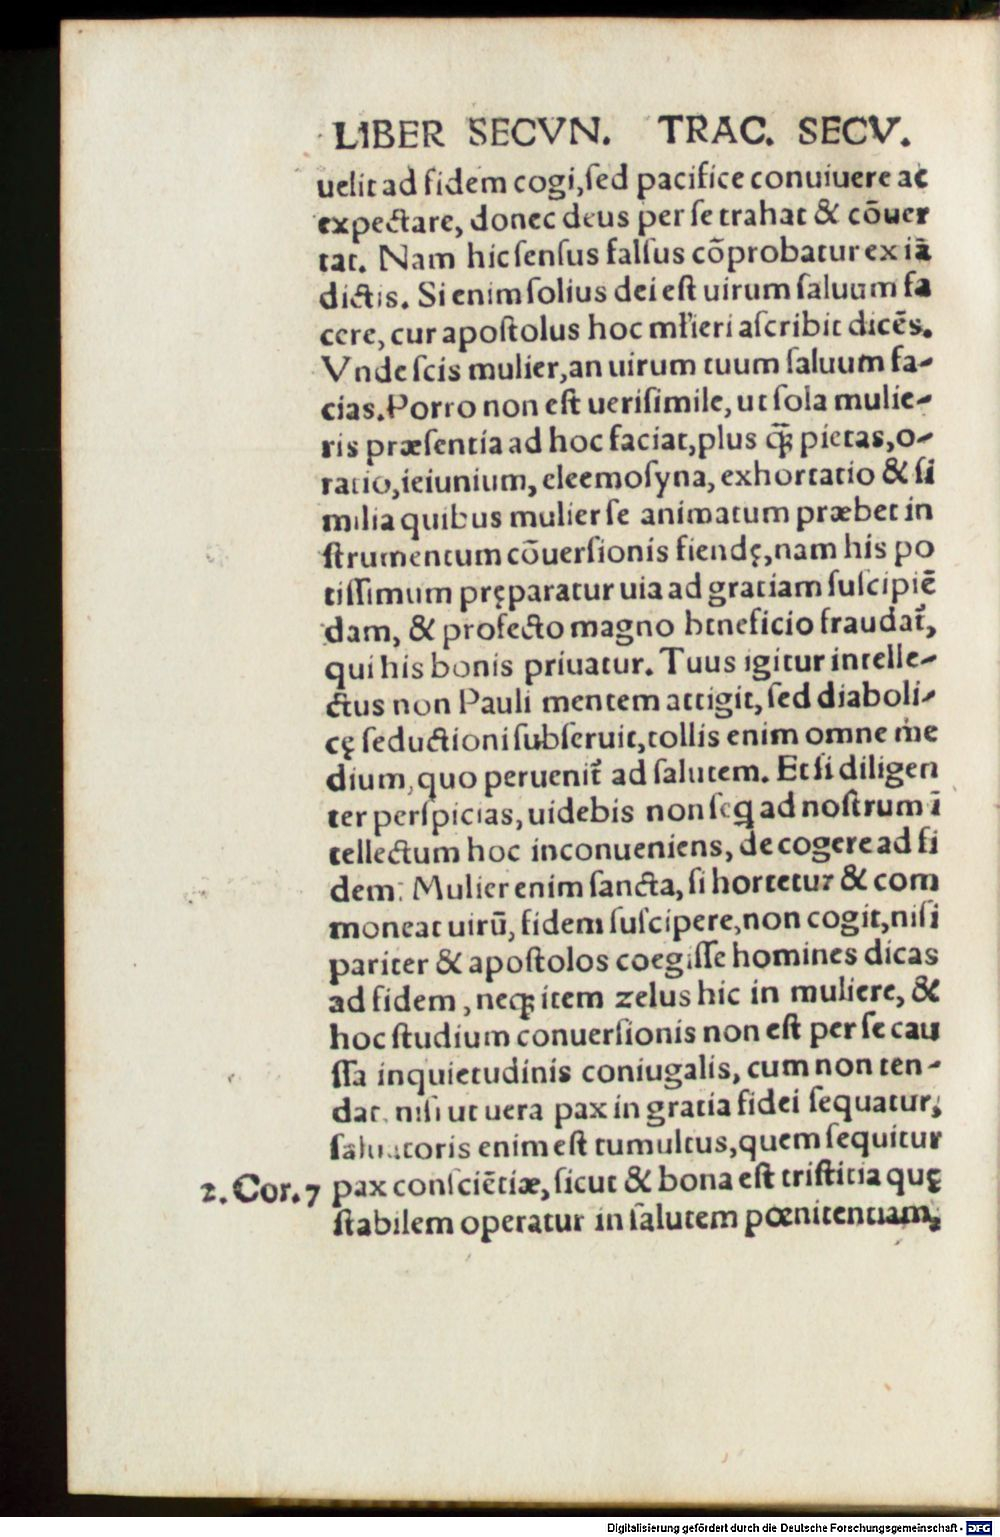 LIBER SECVN. TRAC. SECV.
uelit ad fidem cogi, ſed pacifice conuiuere ac
expectare, donec deus per ſe trahat & cõuer
tat. Nam hic ſenſus falſus cõprobatur ex iã
dictis. Si enim ſolius dei eſt uirum ſaluum fa
cere, cur apoſtolus hoc młieri aſcribit dicẽs.
Vnde ſcis mulier, an uirum tuum ſaluum fa-
cias. Porro non eſt ueriſimile, ut ſola mulie-
ris præſentia ad hoc faciat, plus q̃ꝫ pietas, o-
ratio, ieiunium, eleemoſyna, exhortatio & ſi
milia quibus mulier ſe animatum præbet in
ſtrumentum cõuerſionis fiendę, nam his po
tiſſimum pręparatur uia ad gratiam ſuſcipiẽ
dam, & profecto magno beneficio fraudat᷑,
qui his bonis priuatur. Tuus igitur intelle-
ctus non Pauli mentem attigit, ſed diaboli-
cę ſeductioni ſubſeruit, tollis enim omne me
dium, quo peruenit᷑ ad ſalutem. Et ſi diligen
ter perſpicias, uidebis non ſeq ad noſtrum ĩ
tellectum hoc inconueniens, de cogere ad fi
dem: Mulier enim ſancta, ſi hortetur & com
moneat uirũ, fidem ſuſcipere, non cogit, niſi
pariter & apoſtolos coegiſſe homines dicas
ad fidem, neqꝫ item zelus hic in muliere, &
hoc ſtudium conuerſionis non eſt per ſe cau
ſſa inquietudinis coniugalis, cum non ten-
dat. niſi ut uera pax in gratia fidei ſequatur,
ſaluatoris enim eſt tumultus, quem ſequitur
2. Cor. 7 pax conſciẽtiæ, ſicut & bona eſt triſtitia quę
ſtabilem operatur in ſalutem pœnitentiam,
Digitalisierung gefördert durch die Deutsche Forschungsgemeinschaft - DFG